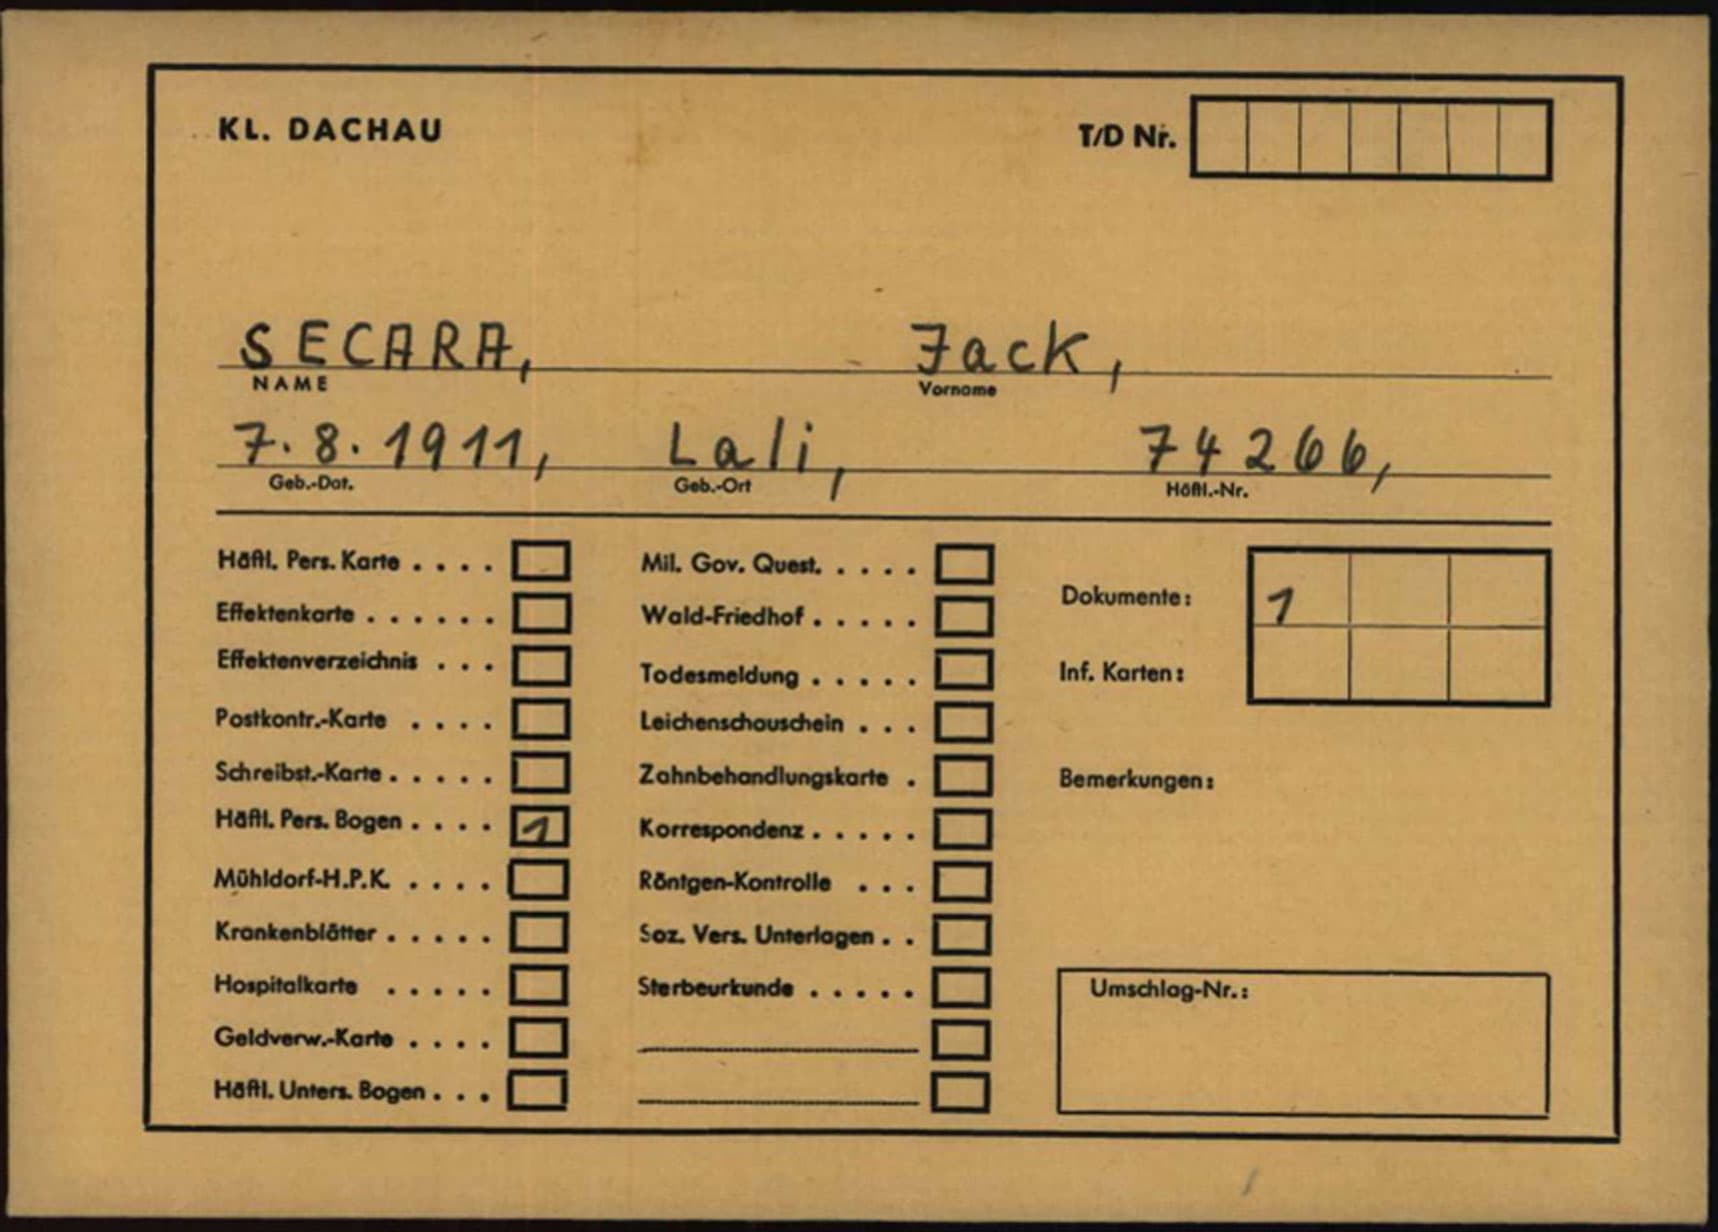 KL. DACHAU
T/D Nr.
SECARA, Jack,
NAME Vorname
7.8.1911, Lali, 74266,
Geb.-Dat. Geb.-Ort Häftl.-Nr.
Häftl. Pers. Karte . . . .
Effektenkarte . . . . . .
Effektenverzeichnis . . .
Postkontr.-Karte . . . .
Schreibst.-Karte . . . . .
Häftl. Pers. Bogen . . . . 1
Mühldorf-H.P.K. . . . .
Krankenblätter . . . . .
Hospitalkarte . . . . .
Geldverw.-Karte . . . .
Häftl. Unters. Bogen . . .
Mil. Gov. Quest. . . . .
Wald-Friedhof . . . . .
Todesmeldung . . . . .
Leichenschauschein . . .
Zahnbehandlungskarte .
Korrespondenz . . . . .
Röntgen-Kontrolle . . .
Soz. Vers. Unterlagen . .
Sterbeurkunde . . . . .
Dokumente: 1
Inf. Karten:
Bemerkungen:
Umschlag-Nr.: